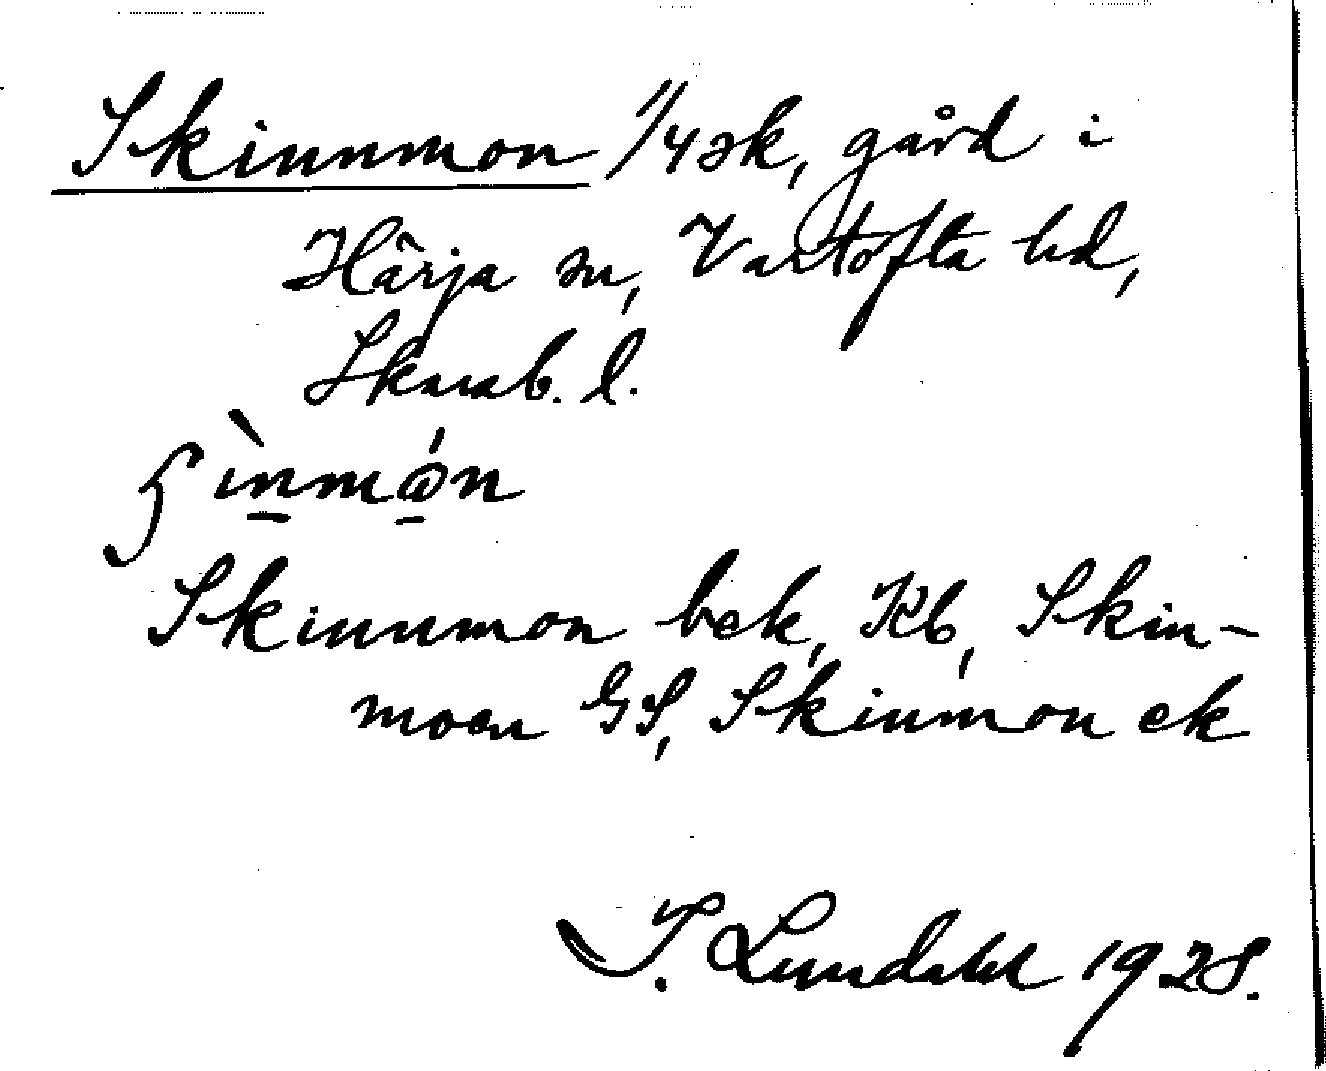 Skinnmon 1/4 sk, gård i
Härja sn, Vartofta hd,
Skarab. l.
ʂìnmǿn
Skinnmon bek, Kb, Skin-
moen GS, Skinnmon ek
I. Lundahl 1928.